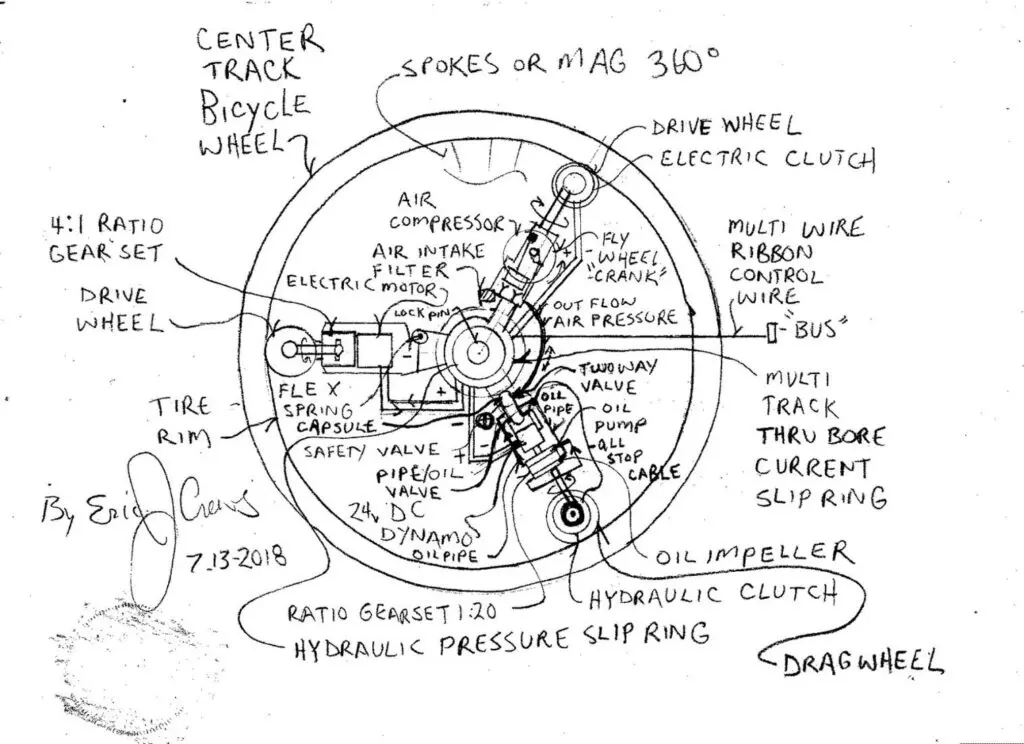 CENTER
TRACK
BICYCLE
WHEEL
SPOKES OR MAG 360°
DRIVE WHEEL
ELECTRIC CLUTCH
AIR
COMPRESSOR
FLY
WHEEL
"CRANK"
4:1 RATIO
GEAR SET
AIR INTAKE
FILTER
ELECTRIC
MOTOR
LOCK PIN
DRIVE
WHEEL
OUT FLOW
AIR PRESSURE
MULTI WIRE
RIBBON
CONTROL
WIRE
"BUS"
FLEX
SPRING
CAPSULE
TWO WAY
VALVE
OIL
PIPE
OIL
PUMP
ALL
STOP
CABLE
MULTI
TRACK
THRU BORE
CURRENT
SLIP RING
TIRE
RIM
SAFETY VALVE
PIPE/OIL
VALVE
24v DC
DYNAMO
OIL PIPE
By Eric J Crews
7-13-2018
OIL IMPELLER
HYDRAULIC CLUTCH
RATIO GEARSET 1:20
HYDRAULIC PRESSURE SLIP RING
DRAGWHEEL